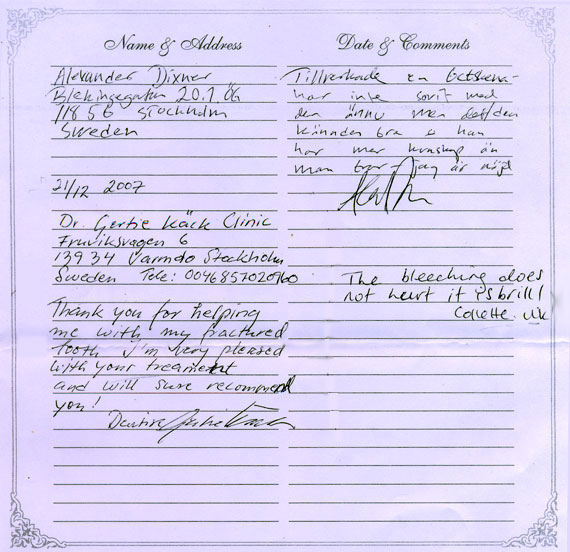 Name & Address
Alexander Dixner
Blekingegatan 20.1.ög
11856 Stockholm
Sweden
21/12 2007
Dr. Gertie Käck Clinic
Fruviksvagen 6
139 34 Varmdo Stockholm
Sweden Tele: 0046857020960
Thank you for helping
me with my fractured
tooth I'm very pleased
with your treament
and will sure recommend
you!
Date & Comments
Tillverkade en
har inte sovit med
den ännu men det/den
kändes bra o han
har mer kunskap än
man tror jag är nöjd
The bleeching does
not heurt it is brill!
Collette. UK